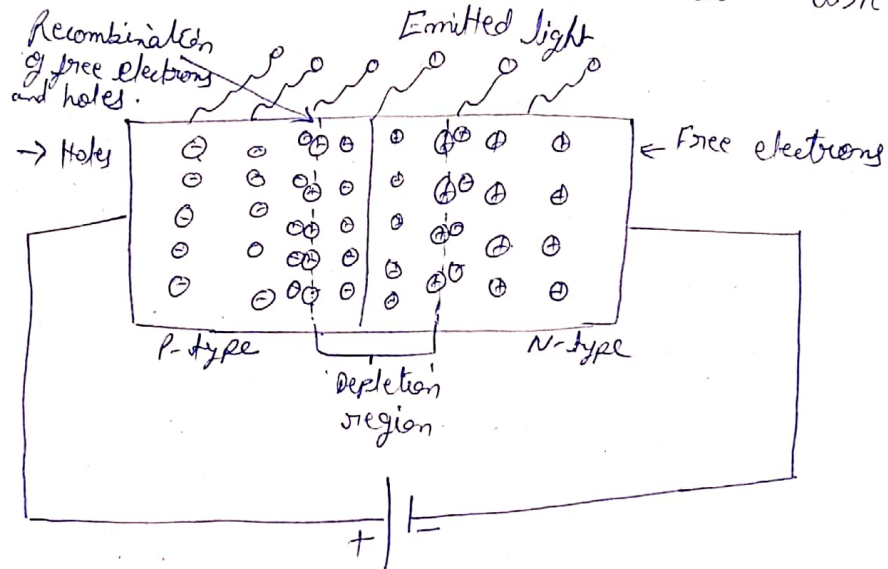 Recombination
of free electrons
and holes.
Emitted light
→ Holes
← Free electrons
P-type
N-type
Depletion
region
+
−